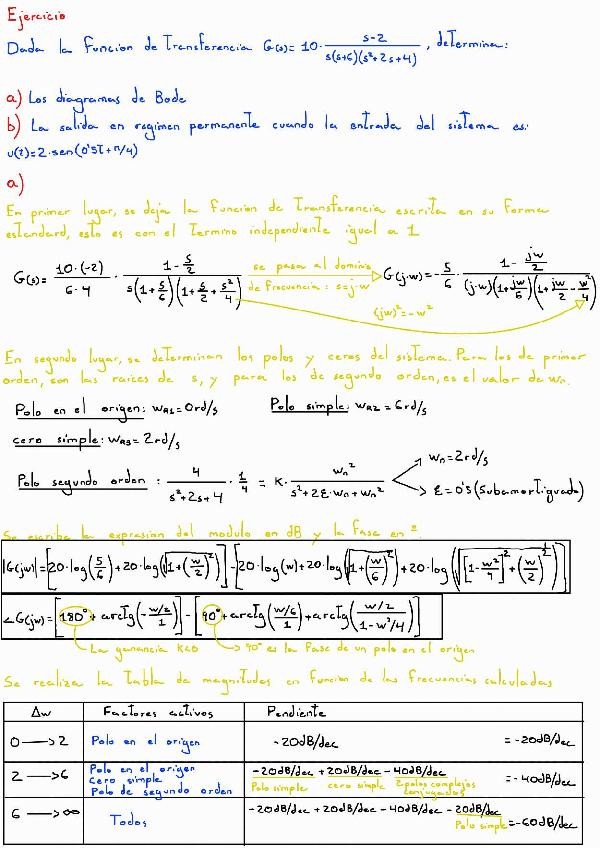 Ejercicio
Dada la función de Transferencia G(s)= 10· (s-2)/(s(s+6)(s²+2s+4)), determina:
a) Los diagramas de Bode
b) La salida en regimen permanente cuando la entrada del sistema es:
u(t)=2·sen(0'5t+π/4)
a)
En primer lugar, se deja la función de Transferencia escrita en su forma
estandard, esto es con el Termino independiente igual a 1
G(s)= (10·(-2))/(6·4) · (1-s/2)/(s(1+s/6)(1+s/2+s²/4)) se pasa al dominio de frecuencia: s=j·w G(j·w)=-5/6 · (1-jw/2)/((j·w)(1+jw/6)(1+jw/2-w²/4))
(jw)²=-w²
En segundo lugar, se determinan los polos y ceros del sistema. Para los de primer
orden, son las raices de s, y para los de segundo orden, es el valor de wn.
Polo en el origen: wR1=0rd/s Polo simple: wR2=6rd/s
cero simple: wR3=2rd/s
Polo segundo orden: 4/(s²+2s+4) · 1/4 = K· wn²/(s²+2ξ·wn+wn²)
wn=2rd/s
ξ=0'5(Subamortiguado)
Se escribe la expresion del modulo en dB y la fase en º.
|G(jw)|=[20·log(5/6)+20·log(√(1+(w/2)²))]-[20·log(w)+20·log(√(1+(w/6)²))+20·log(√([1-w²/4]²+(w/2)²))]
∠G(jw)=[180°+arctg(-w/2/1)]-[90°+arctg(w/6/1)+arctg(w/2/(1-w²/4))]
La ganancia K<0 90° es la fase de un polo en el origen
Se realiza la Tabla de magnitudes en función de las frecuencias calculadas
Δw Factores activos Pendiente
0→2 Polo en el origen -20dB/dec =-20dB/dec
2→6 Polo en el origen
cero simple
Polo de segundo orden
-20dB/dec+20dB/dec-40dB/dec =-40dB/dec
Polo simple cero simple 2 polos complejos
conjugados
6→∞ Todos -20dB/dec+20dB/dec-40dB/dec-20dB/dec =-60dB/dec
Polo simple